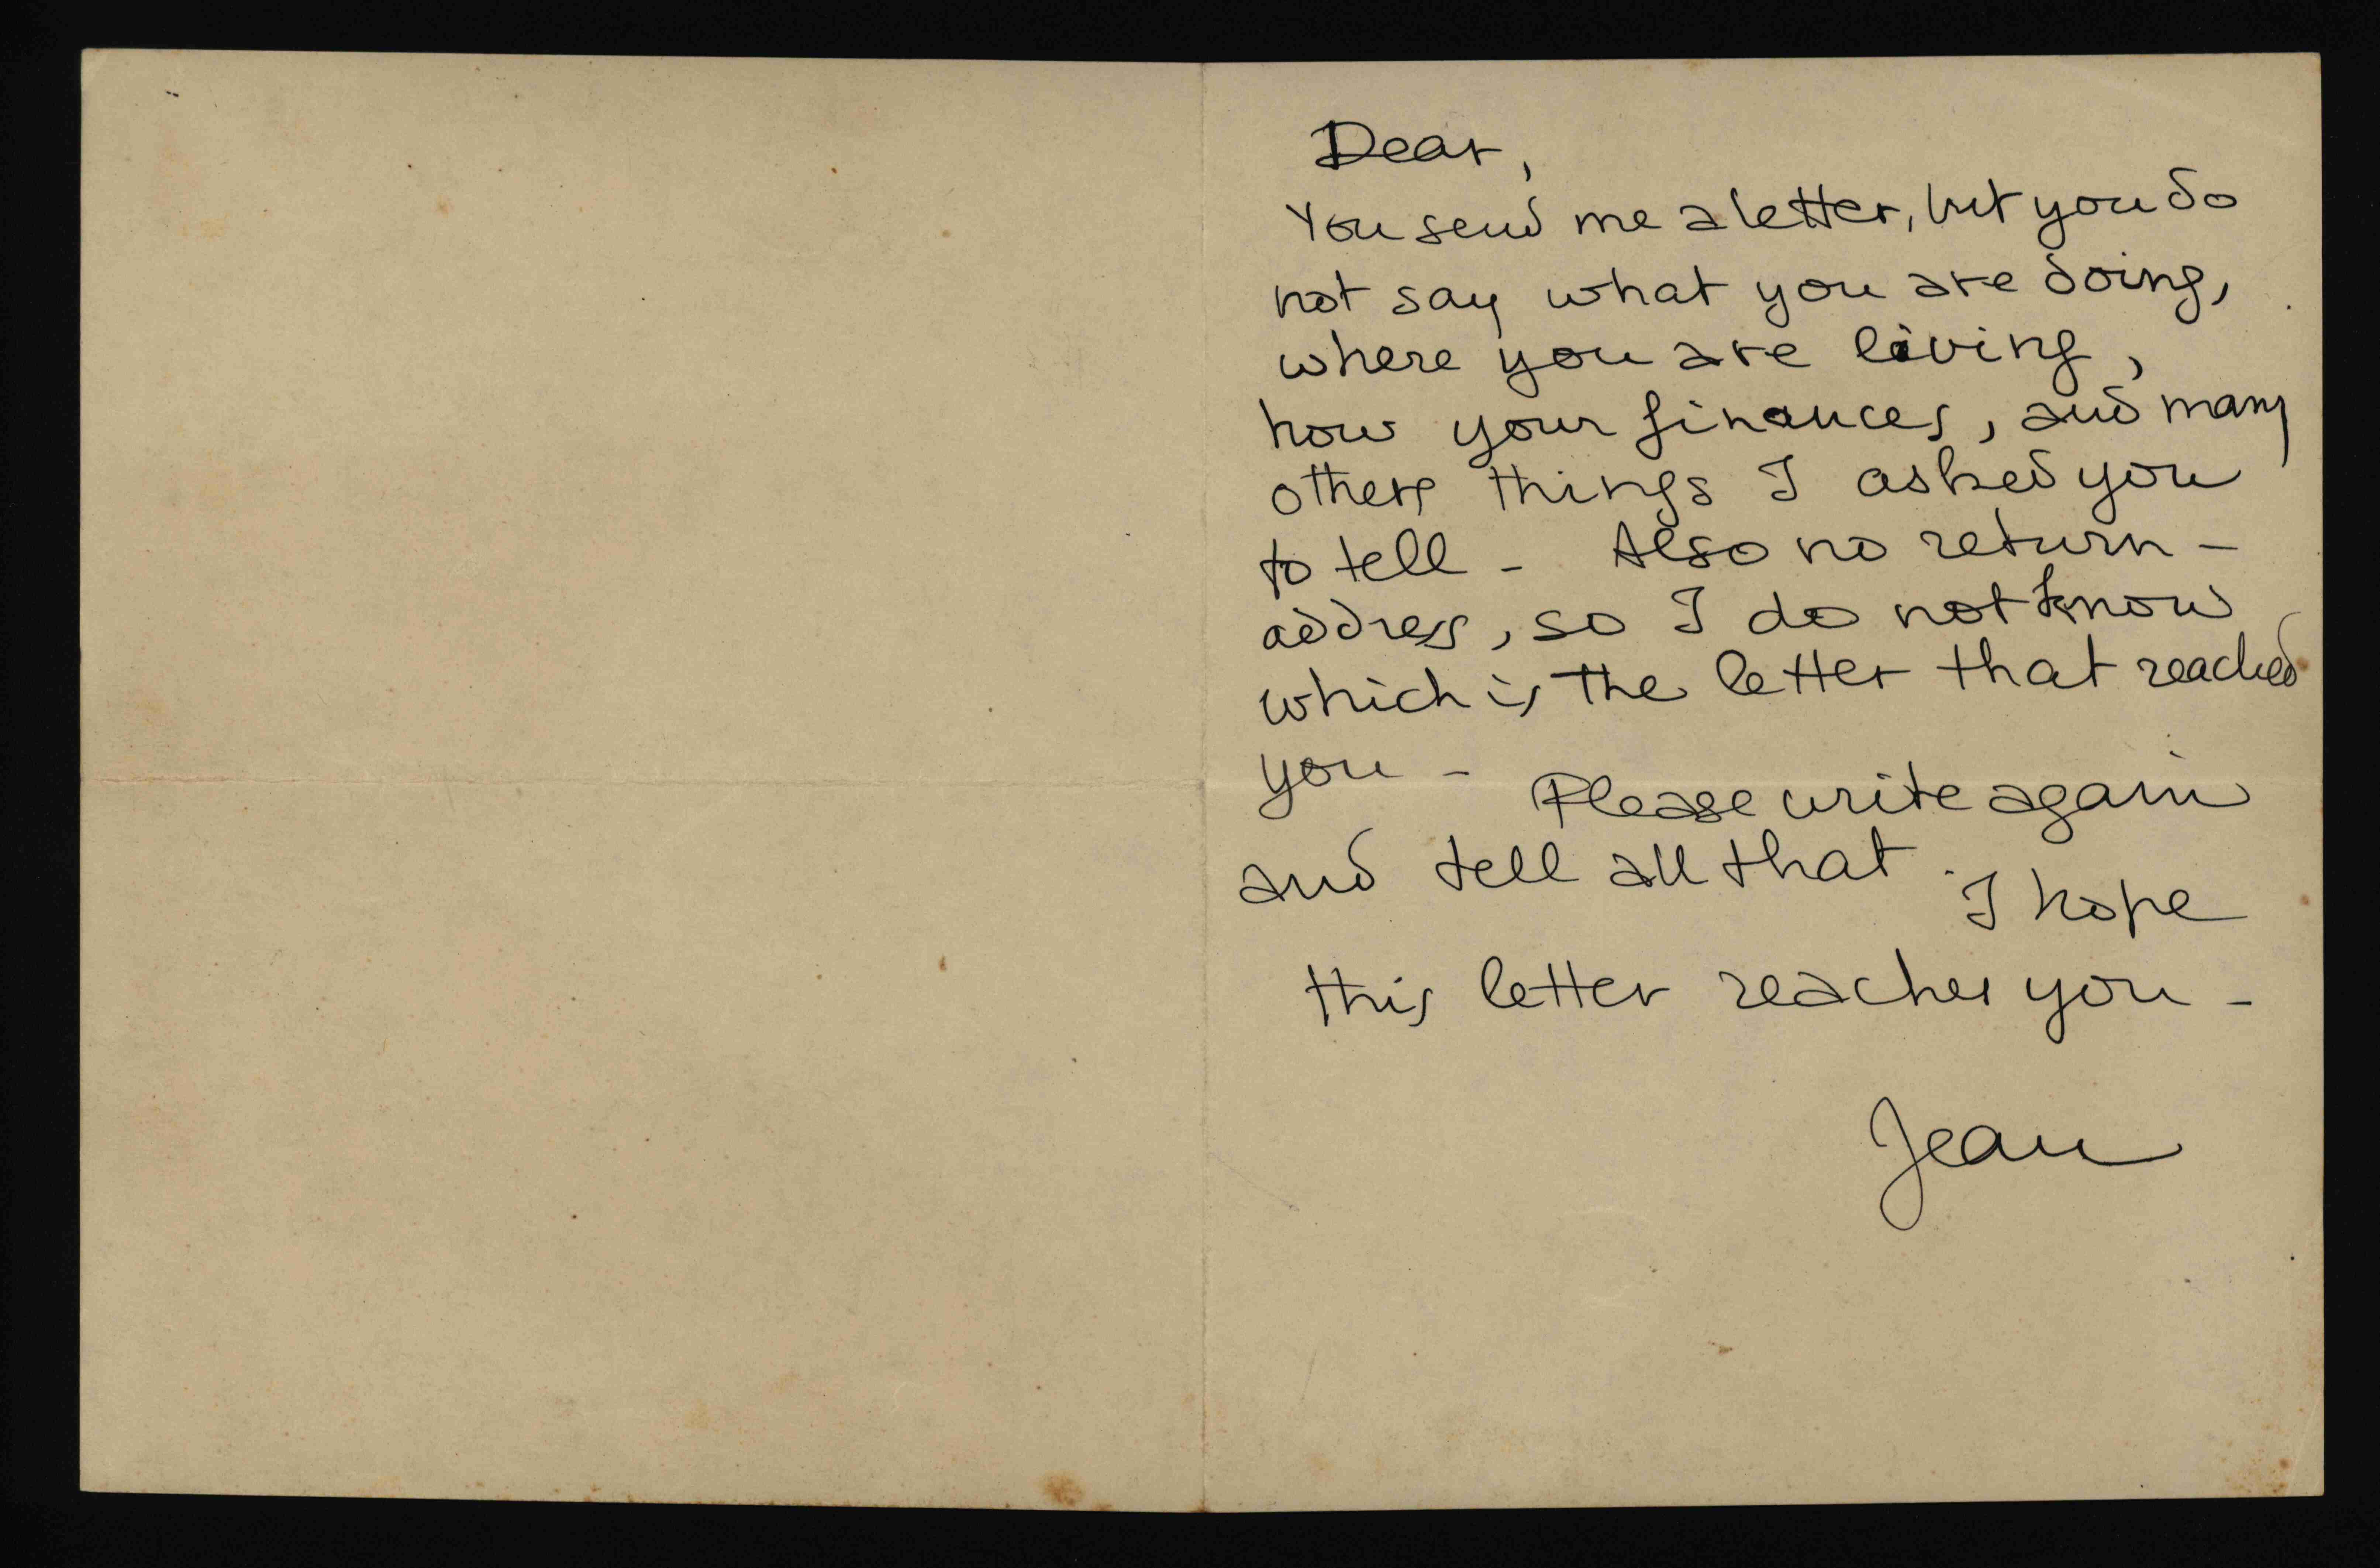 Dear,
You send me a letter, but you do
not say what you are doing,
where you are living,
how your finances, and many
others things I asked you
to tell - Also no return -
address, so I do not know
which is the letter that reached
you - Please write again
and tell all that. I hope
this letter reaches you -
Jean